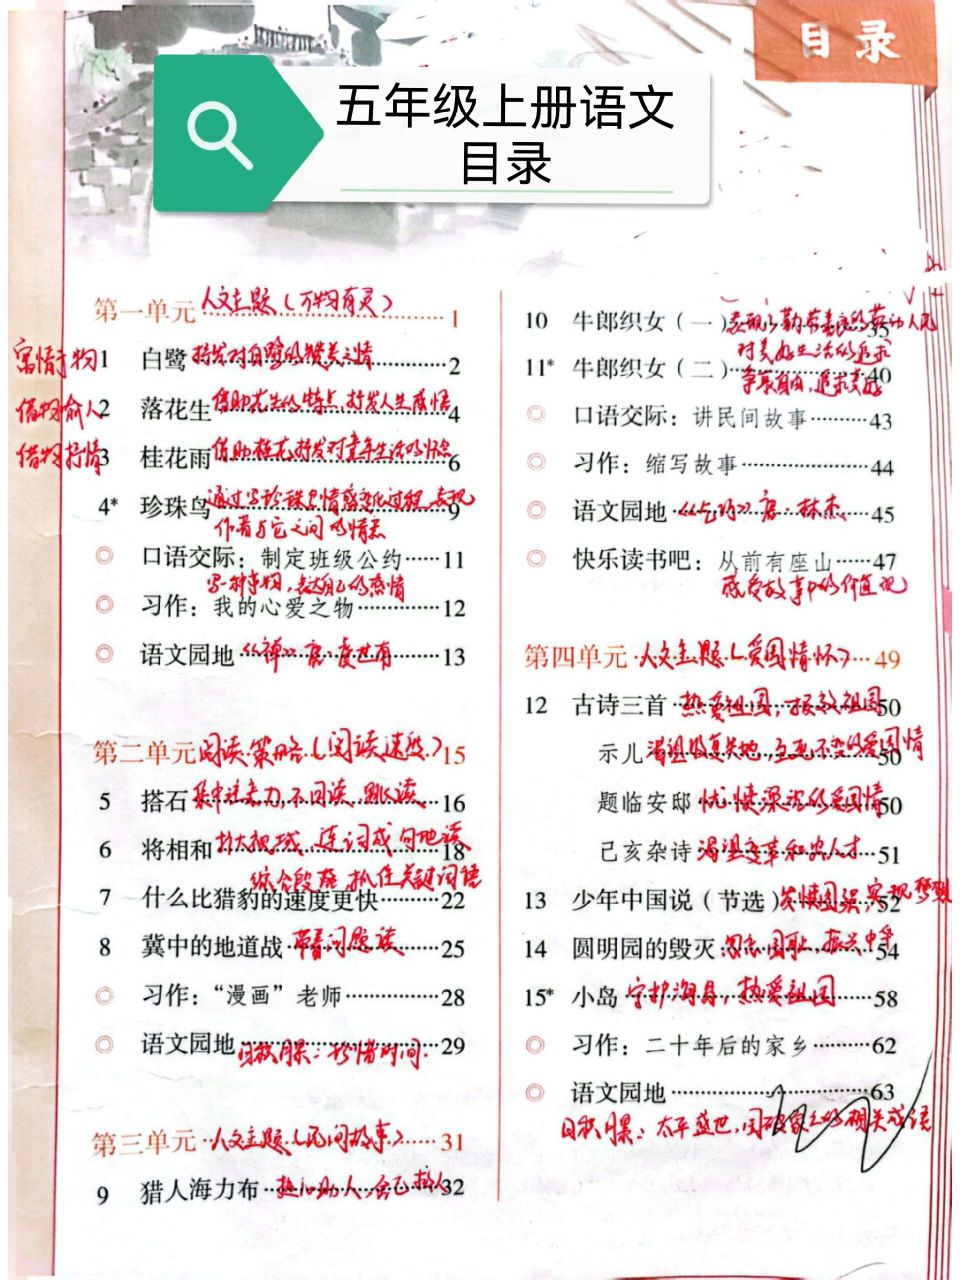 目录
五年级上册语文
目录
第一单元 人文主题（万物有灵） 1
寓情于物 1 白鹭 抒发对白鹭的赞美之情 2
借物喻人 2 落花生 借助花生的特点，抒发人生感悟 4
借物抒情 3 桂花雨 借助桂花抒发对童年生活的怀念 6
4* 珍珠鸟 通过写珍珠鸟情感变化过程，表现 9
作者与它之间的情意
口语交际：制定班级公约 11
写一种事物，表达自己的感情
习作：我的心爱之物 12
语文园地 《蝉》唐·虞世南 13
第二单元 阅读策略（阅读速度） 15
5 搭石 集中注意力，不回读，跳读 16
6 将相和 扩大视域，连词成句地读 18
抓住关键词语
7 什么比猎豹的速度更快 22
8 冀中的地道战 带着问题读 25
习作：“漫画”老师 28
语文园地 29
日积月累：珍惜时间
第三单元 人文主题（民间故事） 31
9 猎人海力布 热心助人，舍己救人 32
10 牛郎织女（一） 35
对美好生活的追求
11* 牛郎织女（二） 40
争取自由，追求幸福
口语交际：讲民间故事 43
习作：缩写故事 44
语文园地 《乞巧》唐·林杰 45
快乐读书吧：从前有座山 47
感受故事中的价值观
第四单元 人文主题（爱国情怀） 49
12 古诗三首 热爱祖国，报效祖国 50
示儿 至死不忘的爱国情 50
题临安邸 忧愤深沉的爱国情 50
己亥杂诗 渴望变革和出人才 51
13 少年中国说（节选） 发愤图强，实现梦想 52
14 圆明园的毁灭 勿忘国耻，振兴中华 54
15* 小岛 守护海岛，热爱祖国 58
习作：二十年后的家乡 62
语文园地 63
日积月累：太平盛世，国破家亡的相关成语